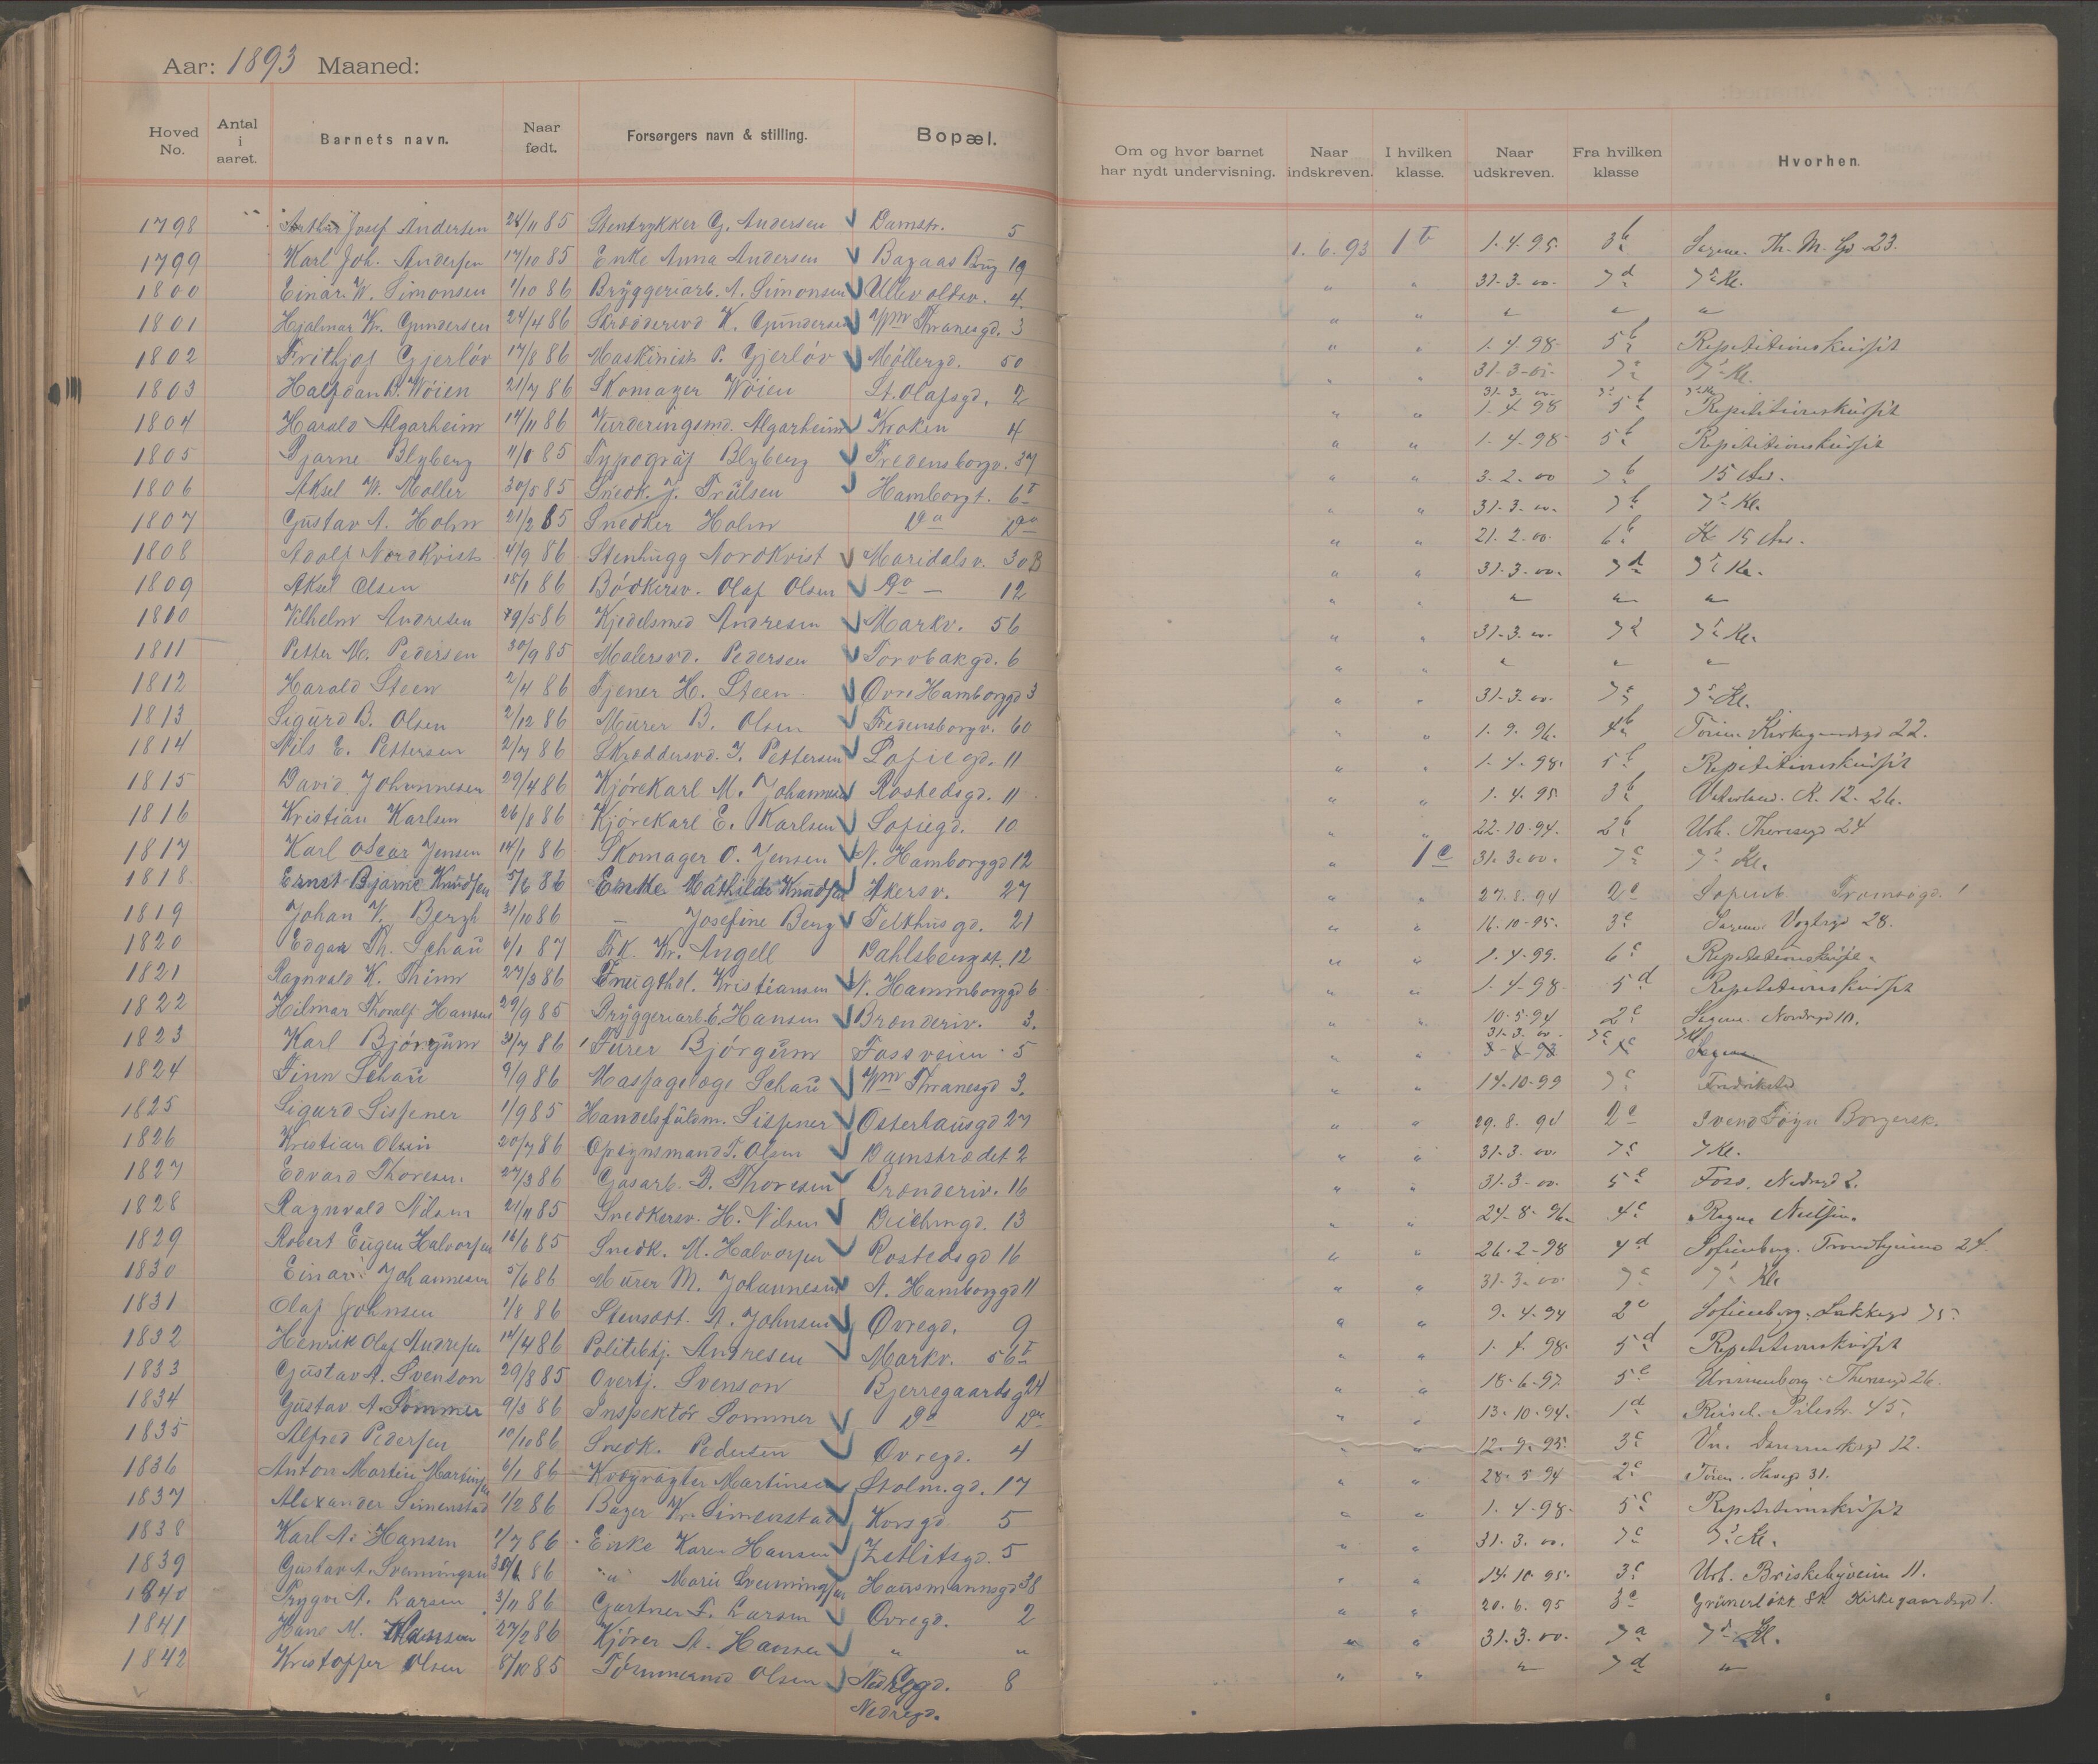 Aar: 1893 Maaned:
Hoved No. Antal i aaret. Barnets navn. Naar født. Forsørgers navn & stilling. Bopæl. Om og hvor barnet har nydt undervisning. Naar indskreven. I hvilken klasse. Naar udskreven. Fra hvilken klasse Hvorhen.
1798 Josef Andersen 28/11 85 Stentrykker G. Andersen Damstr. 5 1.6.93 1 b 1.4.95 3 b Sagene. Th. M. Gd 23.
1799 Karl Joh. Andersen 17/10 85 Enke Anna Andersen 19 " " 31-3-00. 7 d 7 Kl.
1800 Einar W. Simonsen 1/10 86 Bryggeriarb. A. Simonsen Ullevoldsv. 4. " " " " "
1801 Hjalmar Kr. Gundersen 24/4 86 Skræddersvd K. Gundersen Thranesgd. 3 " " 1.4.98 5 b Repetitionskursit
1802 Frithjof Gjerløv 17/8 86 Maskinist P. Gjerløv Møllergd. 50 " " 7 7 Kl.
1803 Halfdan B. Wøien 21/7 86 Skomager Wøien St. Olafsgd. 2 31.3.00
1804 Harald Algarheim 14/11 86 Vurderingsmd. Algarheim Kroken 4 " " 1.4.98 5 b Repetitionskursit
1805 Bjarne Blyberg 85 Typograf Blyberg Fredensborgv. 37 " " 1.4.98 5 b Repetitionskursit
1806 Aksel W. Moller 30/5 85 Snedk. J. Trulsen Hamborgt. 6 I " " 3.2.00 7 b 15 Aar.
1807 Gustav A. Holm 21/2 85 Snedker Holm Do Do " " 31.3.00. 7 b 7 Kl.
1808 Adolf Nordkvist 4/9 86 Stenhugg Nordkvist Maridalsv. 30 B " " 21.2.00. 6 b 15 Aar.
1809 Aksel Olsen 15/1 86 Bødkersv. Olaf Olsen Do — 12 " " 31.3.00. 7 d 7 Kl.
1810 Vilhelm Andresen 29/5 86 Kjedelsmed Andresen Markv. 56 " " " " "
1811 Petter M. Pedersen 30/9 85 Malersvd. Pedersen Torvbakgd. 6 " " 31.3.00. 7 7 Kl.
1812 Harald Steen 2/4 86 Tjener H. Steen Øvre Hamborggd 3 " " " " "
1813 Sigurd B. Olsen 2/12 86 Murer B. Olsen Fredensborgv. 60 " " 31-3.00. 7 7 Kl.
1814 Nils E. Pettersen 2/7 86 Skræddersvd. J. Pettersen Sofiegd. 11 " " 1.9.96. 4 b Kirkegaardsgd 22.
1815 David Johannesen 29/4 86 Kjørekarl M. Johannesen Rostedsgd. 11 " " 1.4.98. 5 b Repetitionskursit
1816 Kristian Karlsen 26/8 86 Kjørekarl E. Karlsen Sofiegd. 10 " " 1.4.95 3 b Vaterland. K. 12. 26.
1817 Karl Oscar Jensen 14/1 86 Skomager O. Jensen N. Hamborggd 12 " " 22.10.94. 2 b Urh. Theresesgd 24
1818 Ernst Bjarne Knudsen 5/6 86 Enke Mathilde Knudsen Akersv. 27 " 1 c 31.3.00. 7 c 7 Kl.
1819 Johan V. Bergh 31/10 86 — Josefine Berg Telthusgd. 21 " " 27.8.94 2 c Sofienb. Tromsøgd. 1
1820 Edgar Th. Schau 6/1 87 Frk. Kr. Angell Dahlsbergst. 12 " " 16.10.95. 3 c Sagene Vogtsgd 28.
1821 Ragnvald K. Thinn 27/3 86 Frugthdl. Kristiansen N. Hammborggd 6 " " 1.4.99. 6 c Repetitionskurse
1822 Hilmar Thoralf Hansen 29/9 85 Bryggeriarb. E. Hansen Brænderiv. 3. " " 1.4.98. 5 d Repetitionskursit
1823 Karl Bjørgum 31/7 86 Furer Bjørgum Fossveien 5 " " 10.5.94 2 c Sagene. Nordregd 10.
1824 Finn Schau 9/9 86 Massagelæge Schau Thranesgd 3. " " 31.3.00 7 c Sagene
1825 Sigurd Sissener 1/9 85 Handelsfuldm. Sissener Osterhausgd 27 " " 14.10.99 7 c Fredrikstad
1826 Kristian Olsen 20/7 86 Opsynsmand T. Olsen Damstrædet 2 " " 29.8.94 2 c Svend Foyn Borgersk.
1827 Edvard Thoresen. 27/3 86 Gasarb. B. Thoresen Brænderiv. 16 " " 31.3.00. 7 c 7 Kl.
1828 Ragnvald Nilsen 21/11 85 Snedkersv. H. Nilsen Deichmgd. 13 " " 31.3-00. 5 c Foss. Nedregd 2.
1829 Robert Eugen Halvorsen 16/6 85 Snedk. M. Halvorsen Rostedsgd 16 " " 24-8-96 4 c Ragna Nielsen.
1830 Einar Johannesen 5/6 86 Murer M. Johannesen N. Hamborggd 11 " " 26.2-98 4 d Sofienberg. Trondhjemsv 24.
1831 Olaf Johnsen 1/8 86 A. Johnsen Øvregd. 9 " " 31-3.00. 7 c 7 Kl.
1832 Henrik Olaf Andresen 14/4 86 Politibtj. Andresen Markv. 56 I " " 9.4.94 2 c Sofienberg. Lakkegd 75.
1833 Gustav A. Svenson 29/8 85 Overtj. Svenson Bjerregaardsg 24 " " 1.4.98. 5 d Repetitionskursit
1834 Gustav A. Sommer 9/3 86 Inspektør Sommer Do Do " " 18-6-97 5 c Uranienborg. Theresesgd 26.
1835 Alfred Pedersen 10/10 86 Snedk. Pedersen Øvregd. 4 " " 13.10.94. 1 d Pilestr. 45.
1836 Anton Martin Martinsen 6/1 86 Kvægrøgter Martinsen Stolm.gd. 17 " " 12.9.95. 3 c 12.
1837 Alexander Simenstad 1/2 86 Bager Kr. Simenstad Korsgd. 5 " " 28.5.94 2 c 31.
1838 Karl A. Hansen 1/7 86 Enke Karen Hansen Zetlitsgd. 5 " " 1.4-98. 5 c Repetitionskursit
1839 Gustav A. Svenningsen 30/6 86 " Marie Svenningsen Hausmannsgd 38 " " 31.3.00. 7 c 7 Kl.
1840 Trygve A. Larsen 3/11 86 Gartner F. Larsen Øvregd. 2 " " 14.10.95. 3 c Urh. Briskebyveien 11.
1841 Hans M. Hansen 27/2 86 Kjører A. Hansen " " " " 20.6.95 3 c Grünerløkk. Sk. Kirkegaardsgd 1.
1842 Kristoffer Olsen 8/10 85 Tømmermd Olsen Nedregd. 8 " " 31.3.00. 7 a 7 Kl.
Nedregd. " " " 7 d "